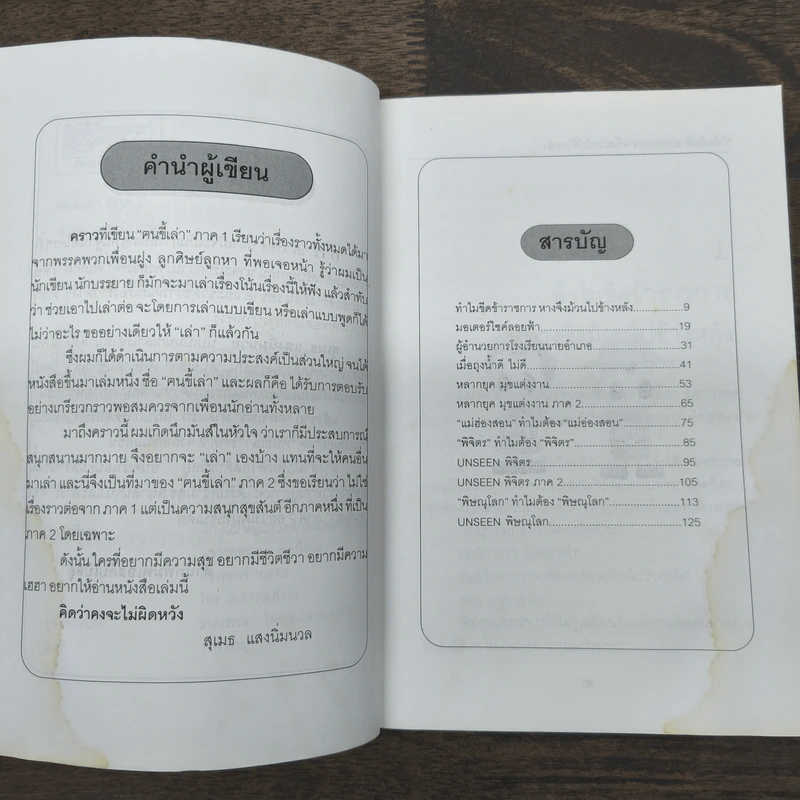 คำนำผู้เขียน
คราวที่เขียน "ฅนขี้เล่า" ภาค 1 เรียนว่าเรื่องราวทั้งหมดได้มา
จากพรรคพวกเพื่อนฝูง ลูกศิษย์ลูกหา ที่พอเจอหน้า รู้ว่าผมเป็น
นักเขียน นักบรรยาย ก็มักจะมาเล่าเรื่องโน้นเรื่องนี้ให้ฟัง แล้วสำทับ
ว่า ช่วยเอาไปเล่าต่อ จะโดยการเล่าแบบเขียน หรือเล่าแบบพูดก็ได้
ไม่ว่าอะไร ขออย่างเดียวให้ "เล่า" ก็แล้วกัน
ซึ่งผมก็ได้ดำเนินการตามความประสงค์เป็นส่วนใหญ่ จนได้
หนังสือขึ้นมาเล่มหนึ่ง ชื่อ "ฅนขี้เล่า" และผลก็คือ ได้รับการตอบรับ
อย่างเกรียวกราวพอสมควรจากเพื่อนนักอ่านทั้งหลาย
มาถึงคราวนี้ ผมเกิดนึกมันส์ในหัวใจ ว่าเราก็มีประสบการณ์
สนุกสนานมากมาย จึงอยากจะ "เล่า" เองบ้าง แทนที่จะให้คนอื่น
มาเล่า และนี่จึงเป็นที่มาของ "ฅนขี้เล่า" ภาค 2 ซึ่งขอเรียนว่า ไม่ใช่
เรื่องราวต่อจาก ภาค 1 แต่เป็นความสนุกสุขสันต์ อีกภาคหนึ่ง ที่เป็น
ภาค 2 โดยเฉพาะ
ดังนั้น ใครที่อยากมีความสุข อยากมีชีวิตชีวา อยากมีความ
เฮฮา อยากให้อ่านหนังสือเล่มนี้
คิดว่าคงจะไม่ผิดหวัง
สุเมธ แสงนิ่มนวล
สารบัญ
ทำไมขีดข้าราชการ หางจึงม้วนไปข้างหลัง...............9
มอเตอร์ไซค์ลอยฟ้า.......................................19
ผู้อำนวยการโรงเรียนนายอำเภอ.........................31
เมื่อถุงน้ำดี ไม่ดี..........................................41
หลากยุค มุขแต่งงาน....................................53
หลากยุค มุขแต่งงาน ภาค 2............................65
"แม่ฮ่องสอน" ทำไมต้อง "แม่ฮ่องสอน"................75
"พิจิตร" ทำไมต้อง "พิจิตร"..............................85
UNSEEN พิจิตร..........................................95
UNSEEN พิจิตร ภาค 2.................................105
"พิษณุโลก" ทำไมต้อง "พิษณุโลก".....................113
UNSEEN พิษณุโลก.....................................125